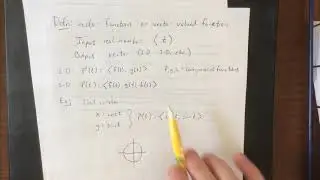 Defn: vector functions or vector-valued functions
Input real number (t)
Output vector (2-D, 3-D, etc.)
2-D r(t) = <f(t), g(t)> f, g, h = component functions
3-D r(t) = <f(t), g(t), h(t)>
Eg) Unit circle
x = cos t
y = sin t } r(t) = <cos t, sin t>